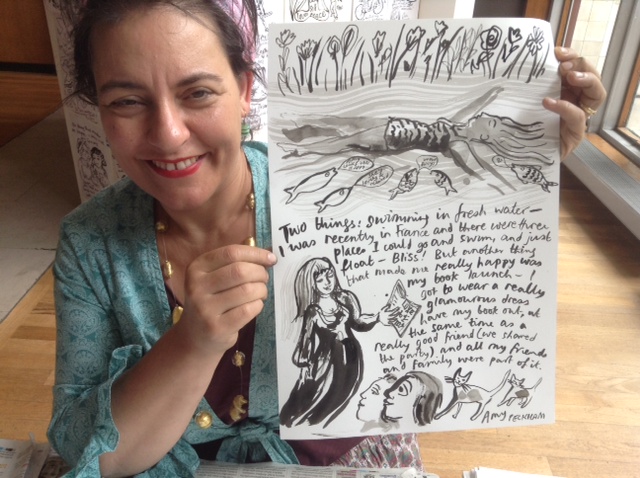 Two things: swimming in fresh water –
I was recently in France and there were three
places I could go and swim, and just
float – Bliss! But another thing
that made me really happy was
my book launch – I
got to wear a really
glamourous dress
have my book out, at
the same time as a
really good friend (we shared
the party) and all my friends
and family were part of it.
Amy PECKHAM